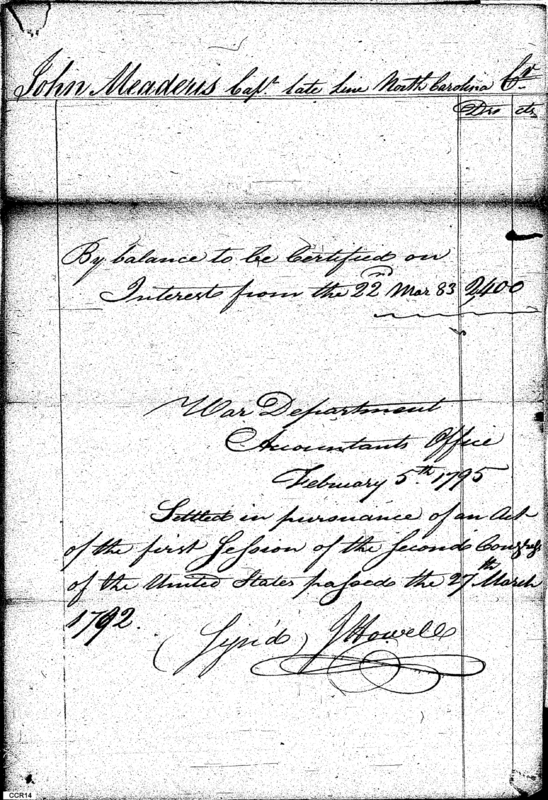 John Meaders Capt. late Line North Carolina Cr.
Drs cts
By balance to be Certified on
Interest from the 22nd Mar 83 2400
War Department
Accountants Office
February 5th. 1795
Settled in pursuance of an Act
of the first Session of the Second Congress
of the United States passed the 27th March
1792.
(Sign'd) J Howell
CCR14